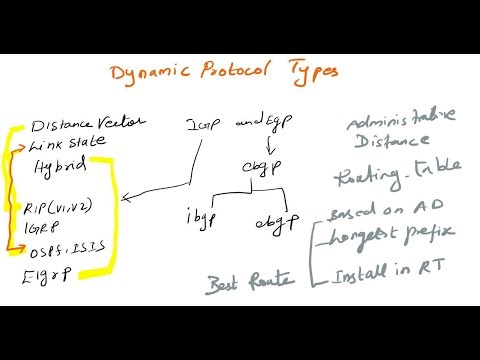 Dynamic Protocol Types
Distance Vector
Link State
Hybrid
RIP(V1,V2)
IGRP
OSPf, ISIS
EIgrp
IGP and Egp
ebgp
ibgp ebgp
Administrative
Distance
Routing-table
Based on AD
Longest prefix
Install in RT
Best Route